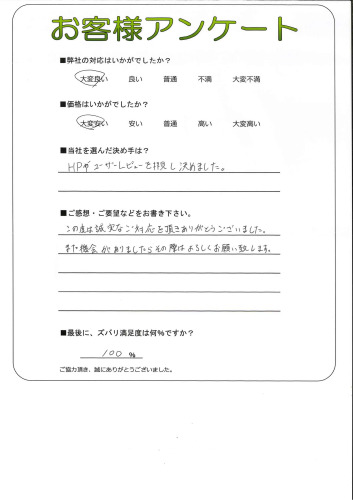 お客様アンケート
■弊社の対応はいかがでしたか?
大変良い 良い 普通 不満 大変不満
■価格はいかがでしたか?
大変安い 安い 普通 高い 大変高い
■当社を選んだ決め手は?
HPやユーザーレビューを拝見し決めました。
■ご感想・ご要望などをお書き下さい。
この度は誠実なご対応を頂きありがとうございました。
また機会がありましたらその際はよろしくお願い致します。
■最後に、ズバリ満足度は何%ですか?
100 %
ご協力頂き、誠にありがとうございました。